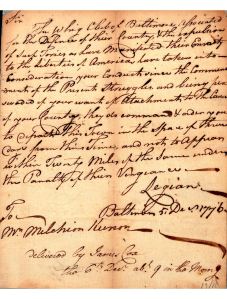 Sir
The Whig Club of Baltimore associated
for the Defence of their Country, & the expulsion
of such Tories as have Manifested their Enmity
to the Liberties of America, have taken into
Consideration your Conduct since the Commence
ment of the Present Struggles and being per
suaded of your want of Attachment to the cause
of your Country, they do command & order you
to depart this Town in the Space of three
days from this time, and not to appear
within Twenty Miles of the same under
the Penalty of their Vengeance
Legion
Baltimore 5 Dec 1776
To
Mr Melchior Keener
delivered by James Cox
the 6th Dec at 9 in the Morng